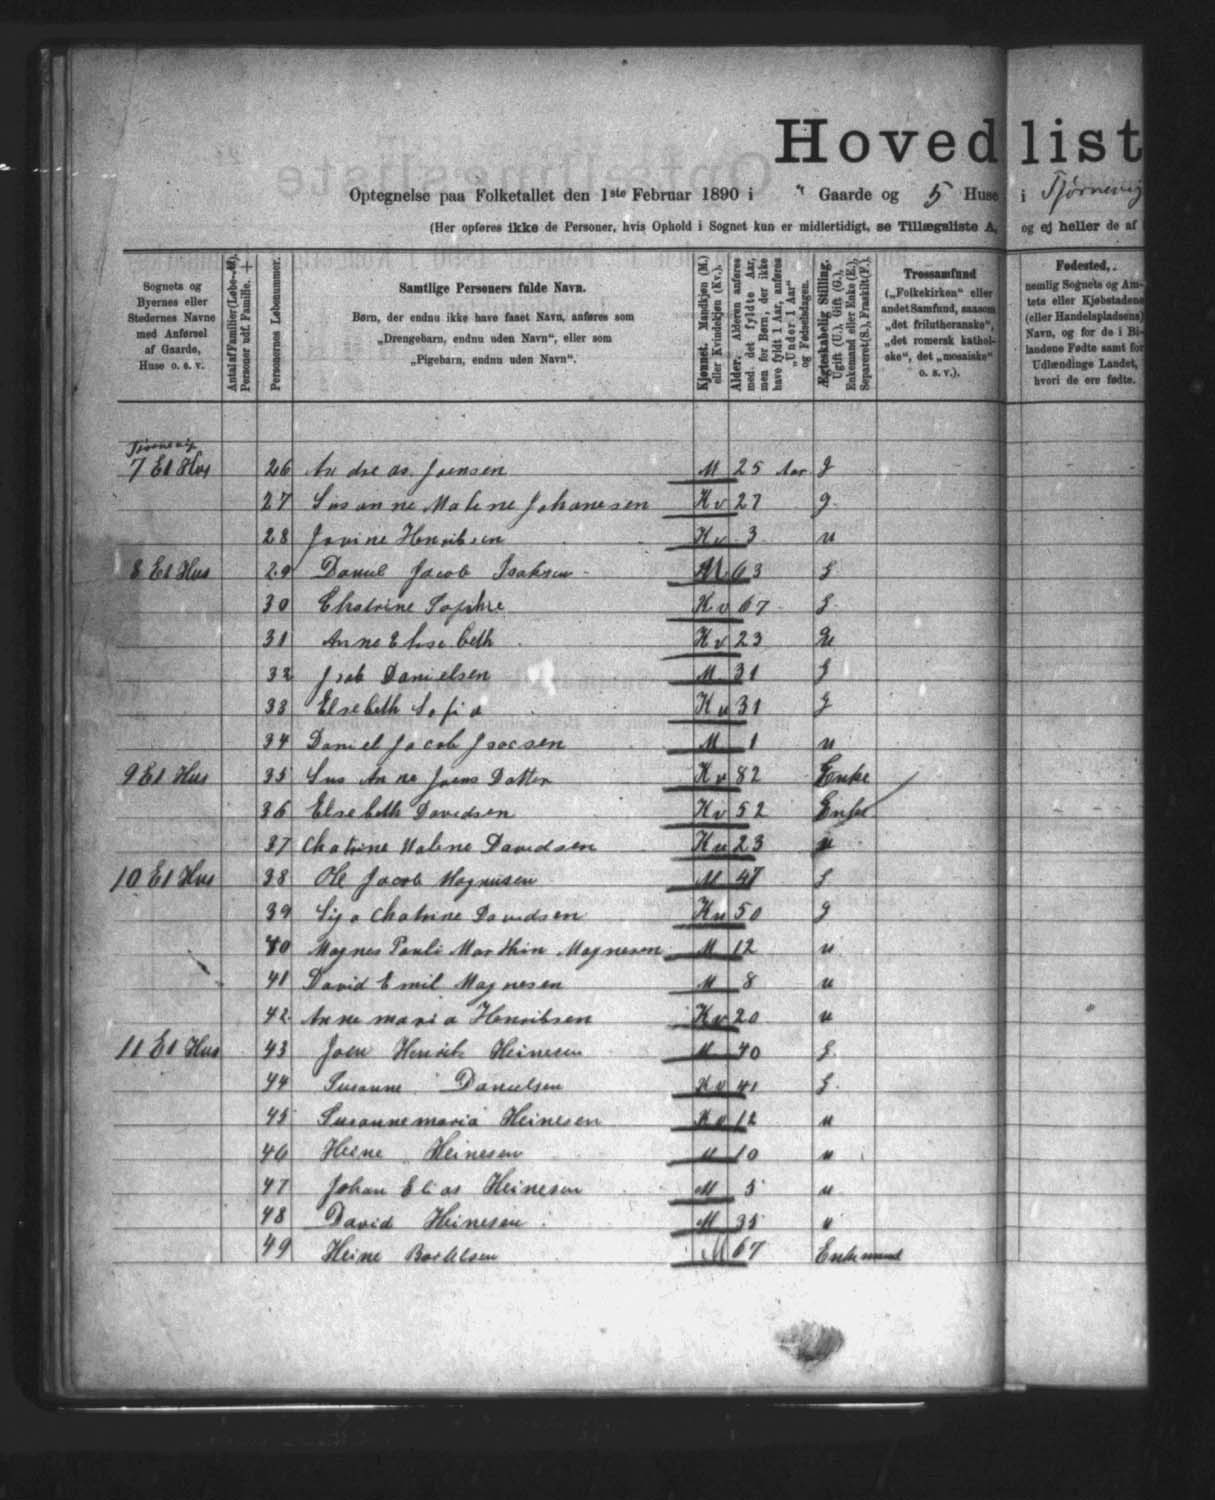 Hovedlist
Optegnelse paa Folketallet den 1ste Februar 1890 i " Gaarde og 5 Huse i Tjørnevig
(Her opføres ikke de Personer, hvis Ophold i Sognet kun er midlertidigt, se Tillægsliste A, og ej heller de af
Sognets og Byernes eller Stedernes Navne med Anførsel af Gaarde, Huse o. s. v.
Antal af Familier (Løbe-№). Personer udf. Familie. +
Personernes Løbenummer.
Samtlige Personers fulde Navn.
Børn, der endnu ikke have faaet Navn, anføres som
„Drengebarn, endnu uden Navn“, eller som
„Pigebarn, endnu uden Navn“.
Kjønnet. Mandkjøn (M.) eller Kvindekjøn (Kv.).
Alder. Alderen anføres med det fyldte Aar, men for Børn, der ikke have fyldt 1 Aar, anføres „Under 1 Aar“ og Fødselsdagen.
Ægteskabelig Stilling. Ugift (U.), Gift (G.), Enkemand eller Enke (E.), Separeret (S.), Fraskilt (F.).
Trossamfund („Folkekirken“ eller andet Samfund, saasom „det frilutheranske“, „det romersk katholske“, det „mosaiske“ o. s. v.).
Fødested, nemlig Sognets og Amtets eller Kjøbstadens (eller Handelspladsens) Navn, og for de i Bilandene Fødte samt for Udlændinge Landet, hvori de ere fødte.
Tjørnevig
7 Et Hus 26 Andreas Joensen M 25 Aar g
27 Susanne Malene Johanesen Kv 27 g.
28 Jovine Henriksen Kv 3 u
8 Et Hus 29 Daniel Jacob Isaksen M 63 g
30 Chatrine Sophie Kv 67 g.
31 Anne Elsebeth Kv 23 u
32 Isak Danielsen M 31 g
33 Elsebeth Sofia Kv 31 g
34 Daniel Jacob Isacsen M 1 u
9 Et Hus 35 Sus Anne Joens Datter Kv 82 Enke
36 Elsebeth Davidsen Kv 52 Enke
37 Chatrine Malene Davidsen Kv 23 u
10 Et Hus 38 Ole Jacob Magnusen M 47 g
39 Siga Chatrine Davidsen Kv 50 g
40 Magnes Pauli Marthin Magnesen M 12 u
41 David Emil Magnesen M 8 u
42 Anne maria Henriksen Kv 20 u
11 Et Hus 43 Joen Henrik Heinesen M 40 g.
44 Susanne Danielsen Kv 41 g.
45 Susannemaria Heinesen Kv 12 u
46 Heine Heinesen M 10 u
47 Johan Elias Heinesen M 5 u
48 David Heinesen M 35 u
49 Heine Bartelsen M 67 Enkemand